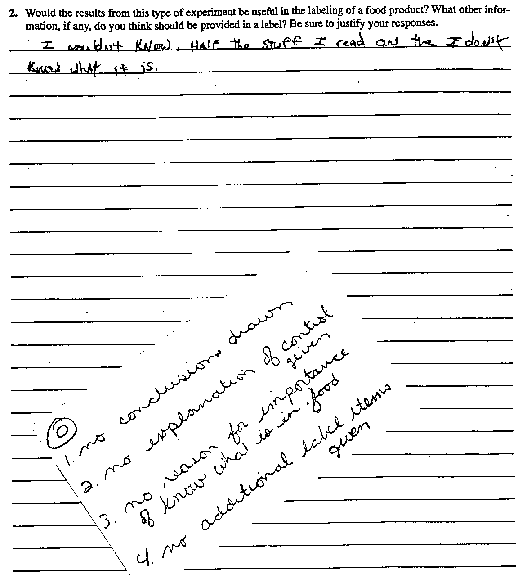 2. Would the results from this type of experiment be useful in the labeling of a food product? What other infor-
mation, if any, do you think should be provided in a label? Be sure to justify your responses.
I wouldn't know. Half the stuff I read on the I don't
know what it is.
0
1. no conclusions drawn
2. no explanation of control
given
3. no reason for importance
of know what is in food
4. no additional label items
given